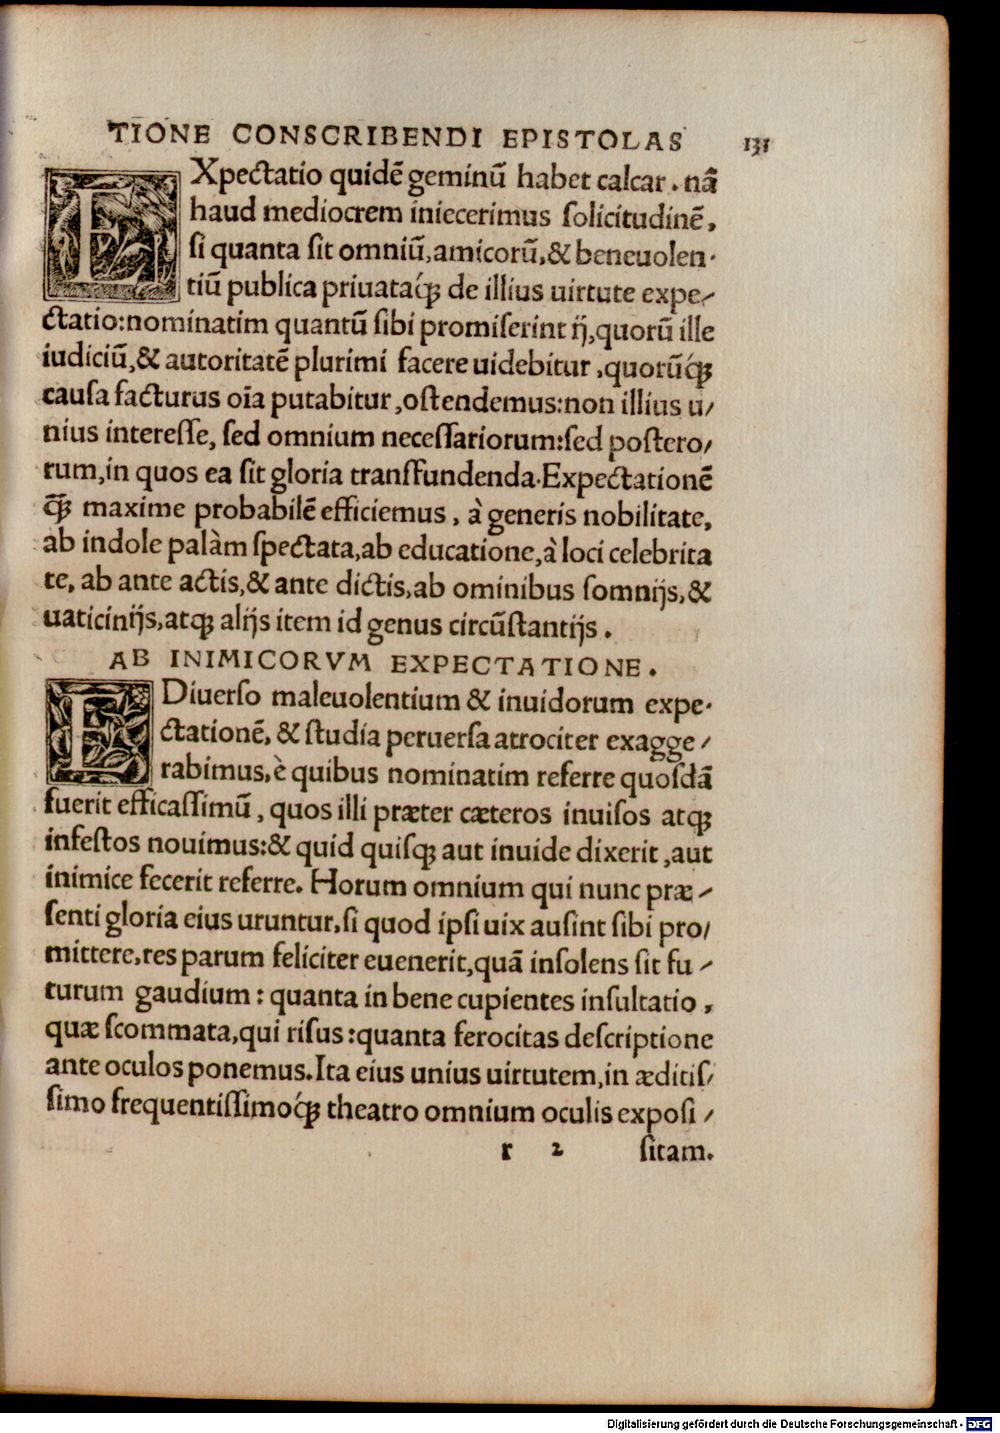 TIONE CONSCRIBENDI EPISTOLAS 131
EXpectatio quidē geminū habet calcar. nā
haud mediocrem iniecerimus ſolicitudinē,
ſi quanta ſit omniū, amicorū, & beneuolen-
tiū publica priuataq́ꝫ de illius uirtute expe-
ctatio: nominatim quantū ſibi promiſerint ij, quorū ille
iudiciū, & autoritatē plurimi facere uidebitur, quorūq́ꝫ
cauſa facturus oīa putabitur, oſtendemus: non illius u-
nius intereſſe, ſed omnium neceſſariorum: ſed poſtero-
rum, in quos ea ſit gloria transfundenda. Expectationē
q̄ꝫ maxime probabilē efficiemus, à generis nobilitate,
ab indole palàm ſpectata, ab educatione, à loci celebrita
te, ab ante actis, & ante dictis, ab ominibus ſomnijs, &
uaticinijs, atqꝫ alijs item id genus circūſtantijs.
AB INIMICORVM EXPECTATIONE.
E Diuerſo maleuolentium & inuidorum expe-
ctationē, & ſtudia peruerſa atrociter exagge-
rabimus, è quibus nominatim referre quoſdā
fuerit efficaſſimū, quos illi præter cæteros inuiſos atqꝫ
infeſtos nouimus: & quid quiſqꝫ aut inuide dixerit, aut
inimice fecerit referre. Horum omnium qui nunc præ-
ſenti gloria eius uruntur, ſi quod ipſi uix auſint ſibi pro-
mittere, res parum feliciter euenerit, quā inſolens ſit fu-
turum gaudium: quanta in bene cupientes inſultatio,
quæ ſcommata, qui riſus: quanta ferocitas deſcriptione
ante oculos ponemus. Ita eius unius uirtutem, in æditiſ-
ſimo frequentiſſimoq́ꝫ theatro omnium oculis expoſi-
r 2 ſitam.
Digitalisierung gefördert durch die Deutsche Forschungsgemeinschaft - DFG